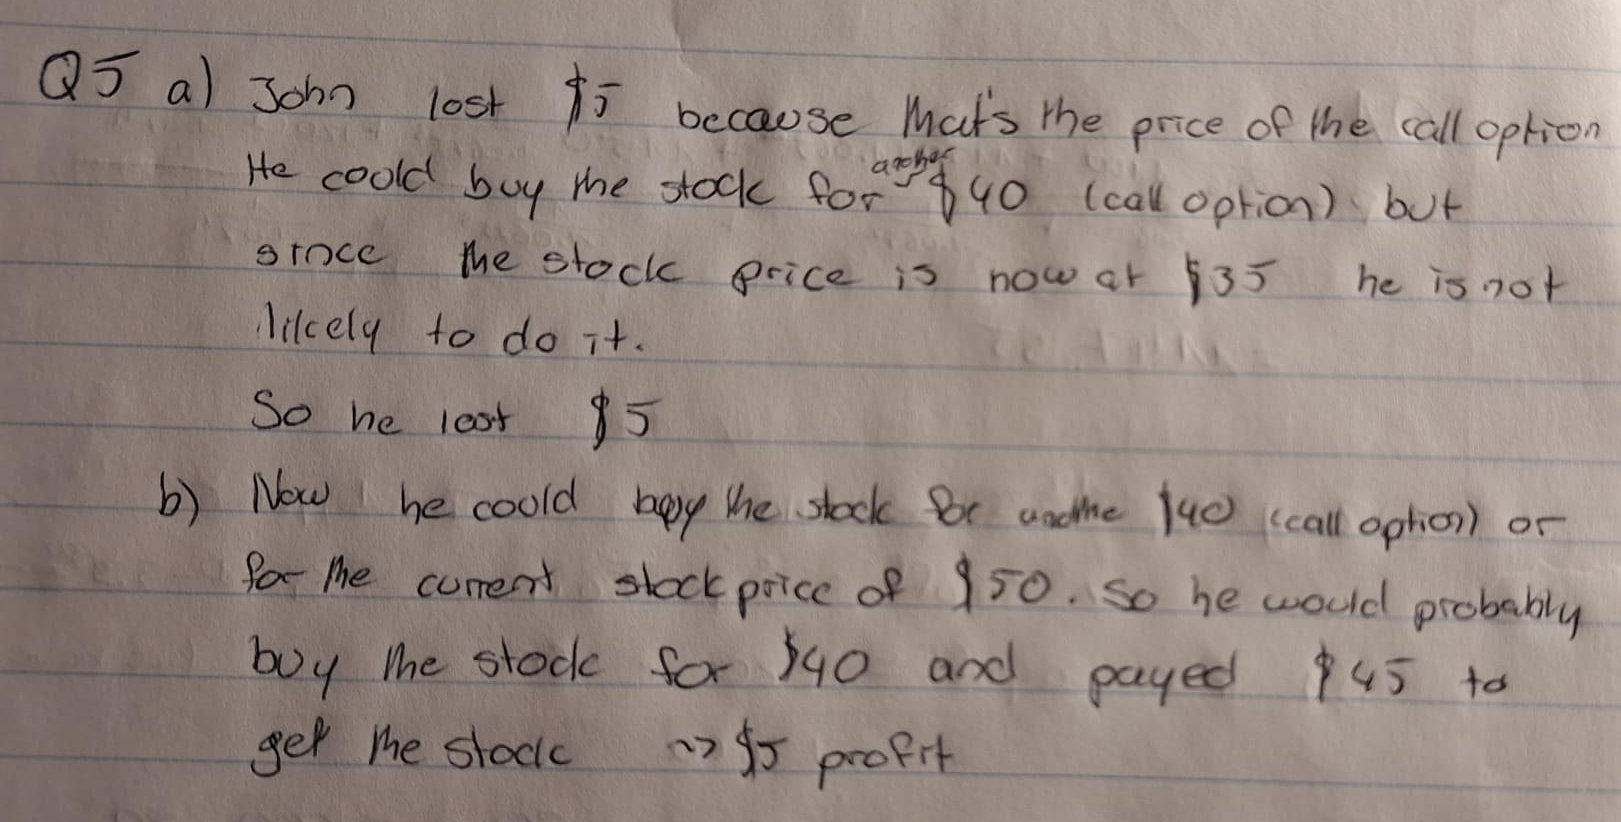 Q5 a) John lost $5 because that's the price of the call option
He could buy the stock for another $40 (call option) but
since the stock price is now at $35 he is not
likely to do it.
So he lost $5
b) Now he could buy the stock for another $40 (call option) or
for the current stock price of $50. So he would probably
buy the stock for $40 and payed $45 to
get the stock ~> $5 profit